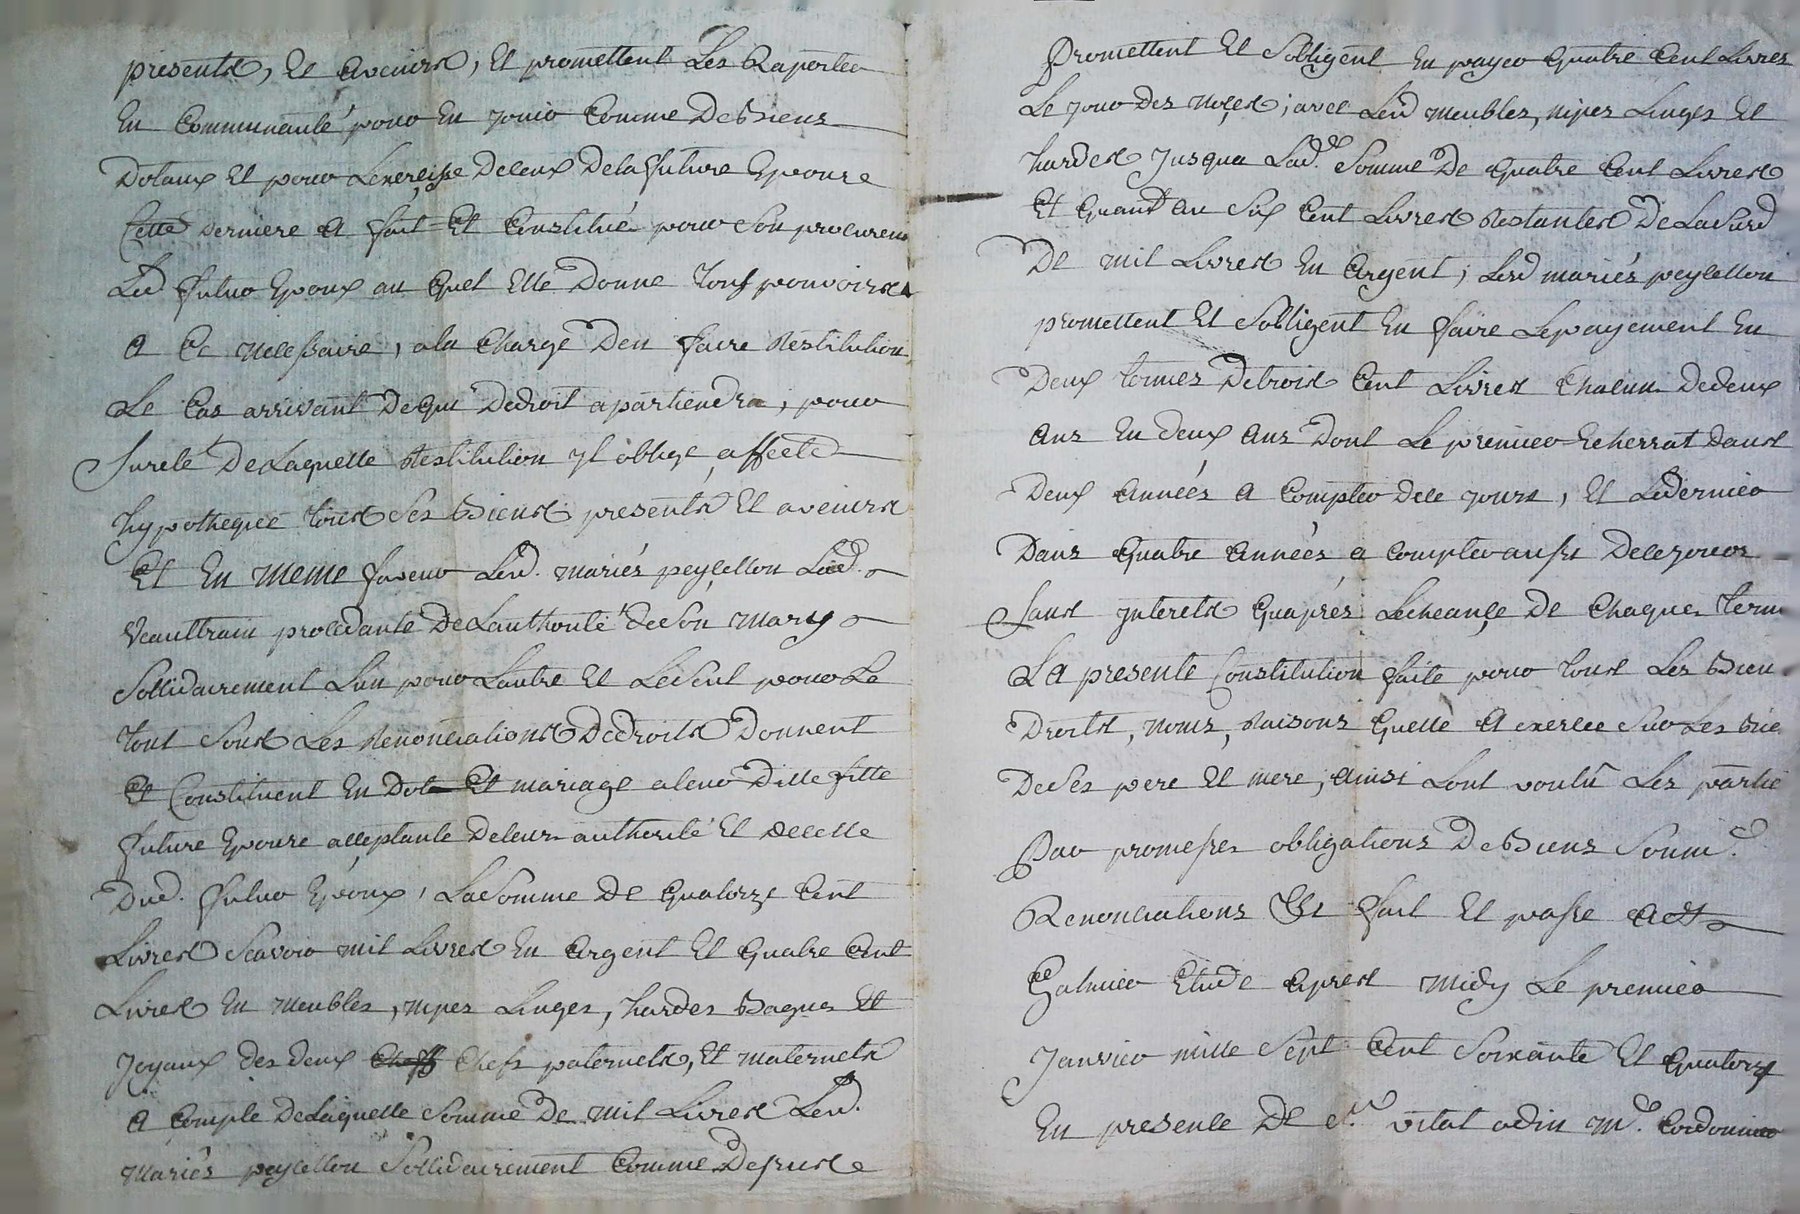 presents, Et avenirs, Et promettent Les Raporter
En Communauté pour En jouir Comme De Biens
Dotaux Et pour Lexercisse Deceux Dela future Epouse
Cette derniere A fait Et Constitué pour Son procureur
Led futur Epoux au quel Elle Donne Tous pouvoirs
a Ce necessaire, ala Charge Den faire Restitution
Le Cas arrivant De qui Dedroit apartiendra, pour
Sureté De Laquelle Restitution jl oblige affecte
hypotheque tous Ses Biens presents Et avenirs
Et En meme faveur Lesd. mariés peycellon Lad.
Veauttrain procedante De Lauthorité de Son mary
Sollidairement Lun pour Lautre Et Leseul pour Le
tout Sous Les Renonciations Dedroits Donnent
Et Constituent En Dot Et mariage aleur Ditte fille
future Epouse acceptante Deleur authorité Et decelle
Dud. futur Epoux, La Somme De quatorze Cent
Livres Scavoir mil Livres En argent Et quatre Cent
Livres En meubles, nipes Linges, hardes Bagues Et
Joyaux des deux Chefs paternels, Et maternels
a Compte De Laquelle Somme De mil Livres Lesd.
mariés peycellon Sollidairement Comme Dessus
Promettent Et Sobligent En payer quatre Cent Livres
Le jour des noces; avec Lesd meubles, nipes Linges Et
hardes jusqua Lad. Somme De quatre Cent Livres
Et quant au Six Cent Livres Restantes De La Susd
De mil Livres En argent, Lesd mariés peycellon
promettent Et Sobligent En faire Lepayement En
Deux termes Detrois Cent Livres Chacun Dedeux
ans En deux ans Dont Le premier Echerrat dans
Deux années a Compter dece jours, Et Ledernier
Dans quatre années a compter aussi Decejours
Sans jnterets quaprés Lecheance De Chaque Term
La presente Constitution faite pour tous Les Bien
Droits, noms, Raisons quelle A exercer Sur Les Bie
DeSes pere Et mere, ainsi Lont voulu Les partie
Par promesses obligations De Biens Soum.
Renonciations Et fait Et passe a St
Galmier Etude apres midy Le premier
Janvier mille Sept Cent Soixante Et quatorze
En presence De Sr. vital odin Md. Cordonnier